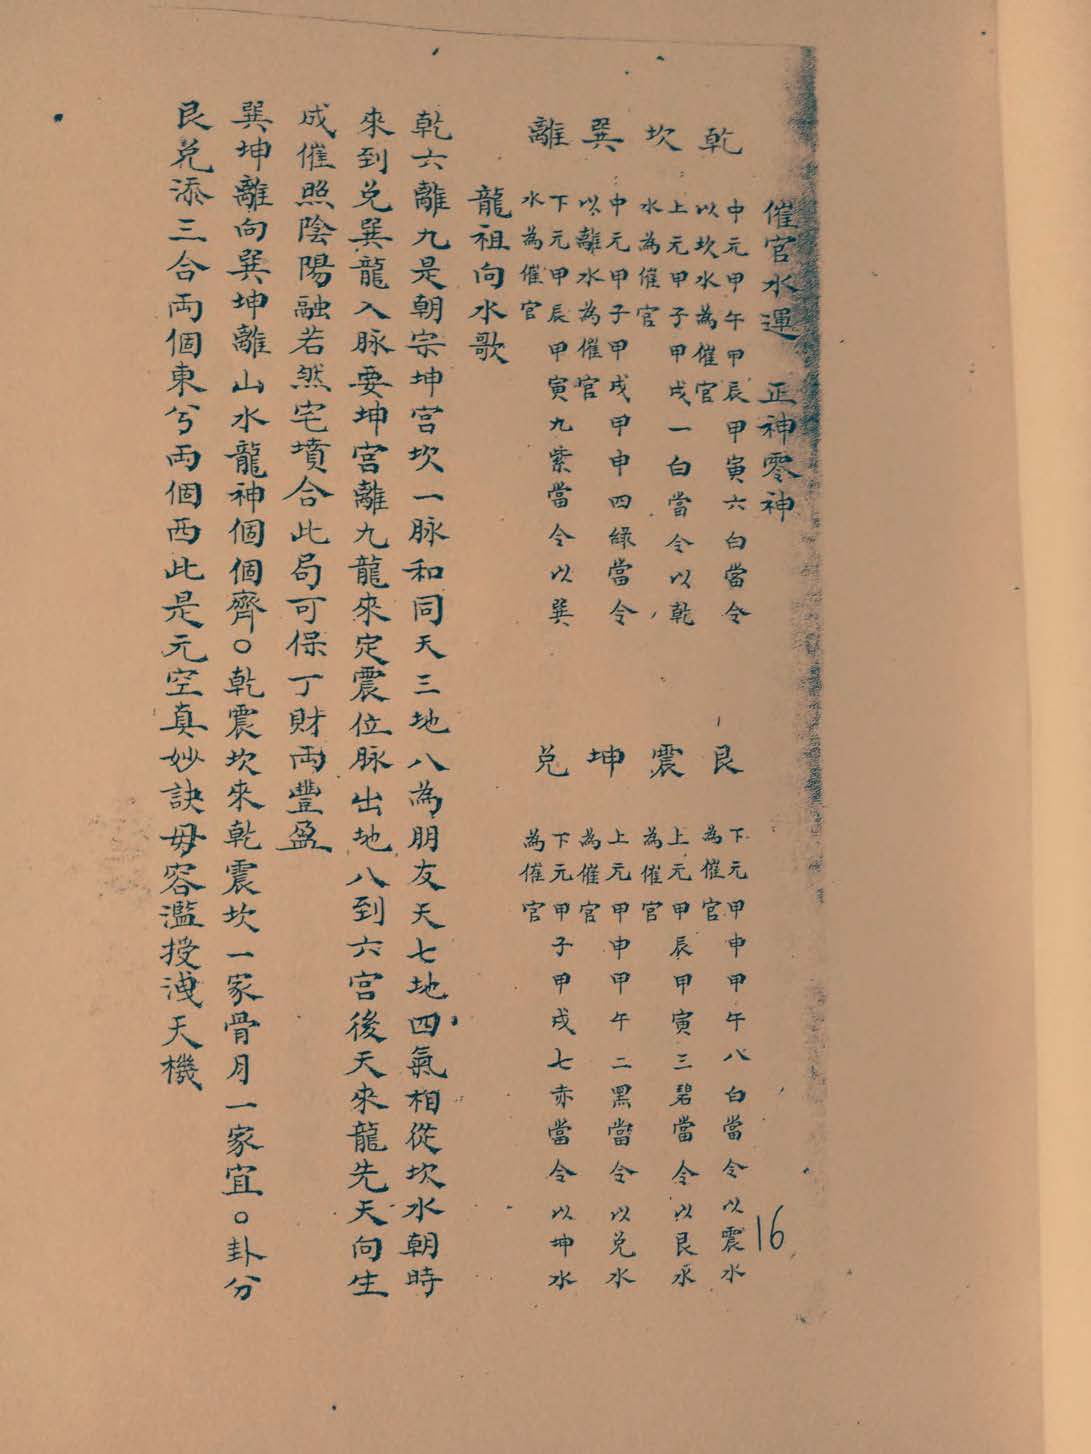 催官水運　正神零神
乾　中元甲午甲辰甲寅六白當令
以坎水為催官
坎　上元甲子甲戌一白當令以乾
水為催官
巽　中元甲子甲戌甲申四綠當令
以離水為催官
離　下元甲辰甲寅九紫當令以巽
水為催官
艮　下元甲申甲午八白當令以震水
為催官
震　上元甲辰甲寅三碧當令以艮水
為催官
坤　上元甲申甲午二黑當令以兌水
為催官
兌　下元甲子甲戌七赤當令以坤水
為催官
龍祖向水歌
乾六離九是朝宗坤宮坎一脉和同天三地八為朋友天七地四氣相從坎水朝時
來到兌巽龍入脉要坤宮離九龍來定震位脉出地八到六宮後天來龍先天向生
成催照陰陽融若然宅墳合此局可保丁財両豐盈
巽坤離向巽坤離山水龍神個個齊。乾震坎來乾震坎一家骨月一家宜。卦分
艮兌添三合両個東兮両個西此是元空真妙訣毋容濫授洩天機
16